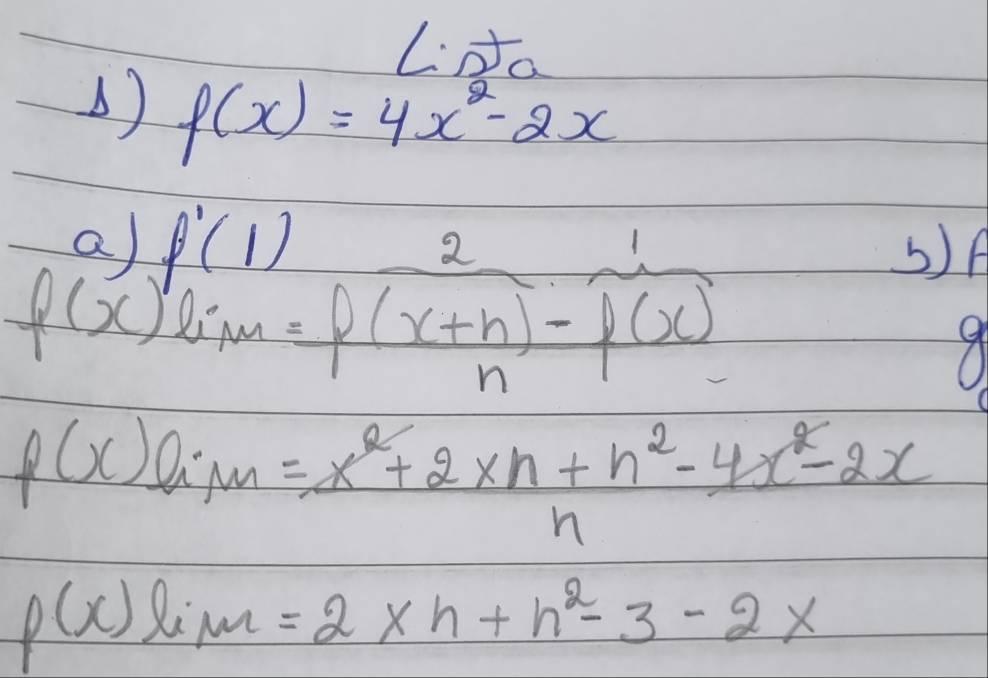 Lista
1) f(x) = 4x² - 2x
a) f'(1)
b) f
2 1
f(x) lim = f(x+h) - f(x)
h
g
f(x) lim = x² + 2xh + h² - 4x² - 2x
h
f(x) lim = 2xh + h² - 3 - 2x